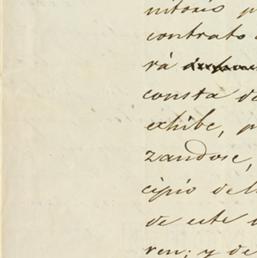 nitorio p
contrato
rá
consta de
exhibe, p
zandose,
cipio del
de este
ren; y de